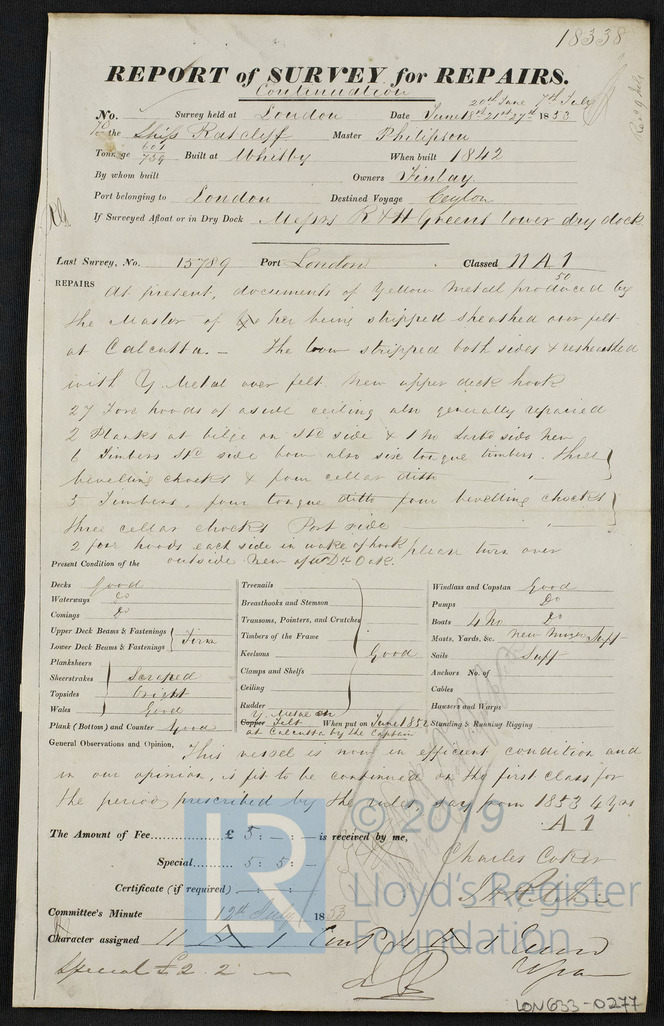 18338
REPORT of SURVEY for REPAIRS.
Continuation
20th June 7th July
No. Survey held at London Date June 18th 21st 27th 1853
the Ship Ratcliff Master Philipson
Tonnage 601 739 Built at Whitby When built 1842
By whom built Owners Finlay
Port belonging to London Destined Voyage Ceylon
If Surveyed Afloat or in Dry Dock Messrs R & H Greens lower dry dock
Last Survey, No. 15789 Port London Classed 11 A 1
50
REPAIRS At present, documents of Yellow Metall produced by
the Master of her being stripped sheathed over felt
at Calcutta. - The bow stripped both sides & resheathed
with Y. Metal over felt. New upper deck hook
27 Fore hoods of aside ceiling also generally repaired
2 Planks at bilge on Stbd side & 1 No Larbd side New
6 Timbers Stbd side bow also six tongue timbers. Three
bevelling chocks & four cellar ditto
5 Timbers, four tongue ditto four bevelling chocks
three cellar chocks Port side
2 fore hoods each side in wake of hook please turn over
Present Condition of the outside New of Dk Oak.
Decks Good
Waterways Do
Comings Do
Upper Deck Beams & Fastenings
Lower Deck Beams & Fastenings Firm
Planksheers
Sheerstrakes Scraped
Topsides bright
Wales Good
Plank (Bottom) and Counter Good
Treenails
Breasthooks and Stemson
Transoms, Pointers, and Crutches
Timbers of the Frame
Keelsons Good
Clamps and Shelfs
Ceiling
Rudder
Y. Metal on
Copper Felt When put on June 1852
at Calcutta by the Captain
Windlass and Capstan Good
Pumps Do
Boats 4 No Do
Masts, Yards, &c. New Mizen Suff
Sails Suff
Anchors No. of
Cables
Hawsers and Warps
Standing & Running Rigging
General Observations and Opinion, This vessel is now in efficient condition and
in our opinion, is fit to be continued on the first class for
the period prescribed by the rules say from 1853 4 Yrs
A 1
The Amount of Fee £ 5 : - : - is received by me,
Special 5 : 5 : -
Charles Coker
Certificate (if required) - : - : -
Committee's Minute 12th July 1853
Character assigned 11 A 1 Cont
Special £2. 2
LON633-0277
© 2019
LR
Lloyd's Register
Foundation